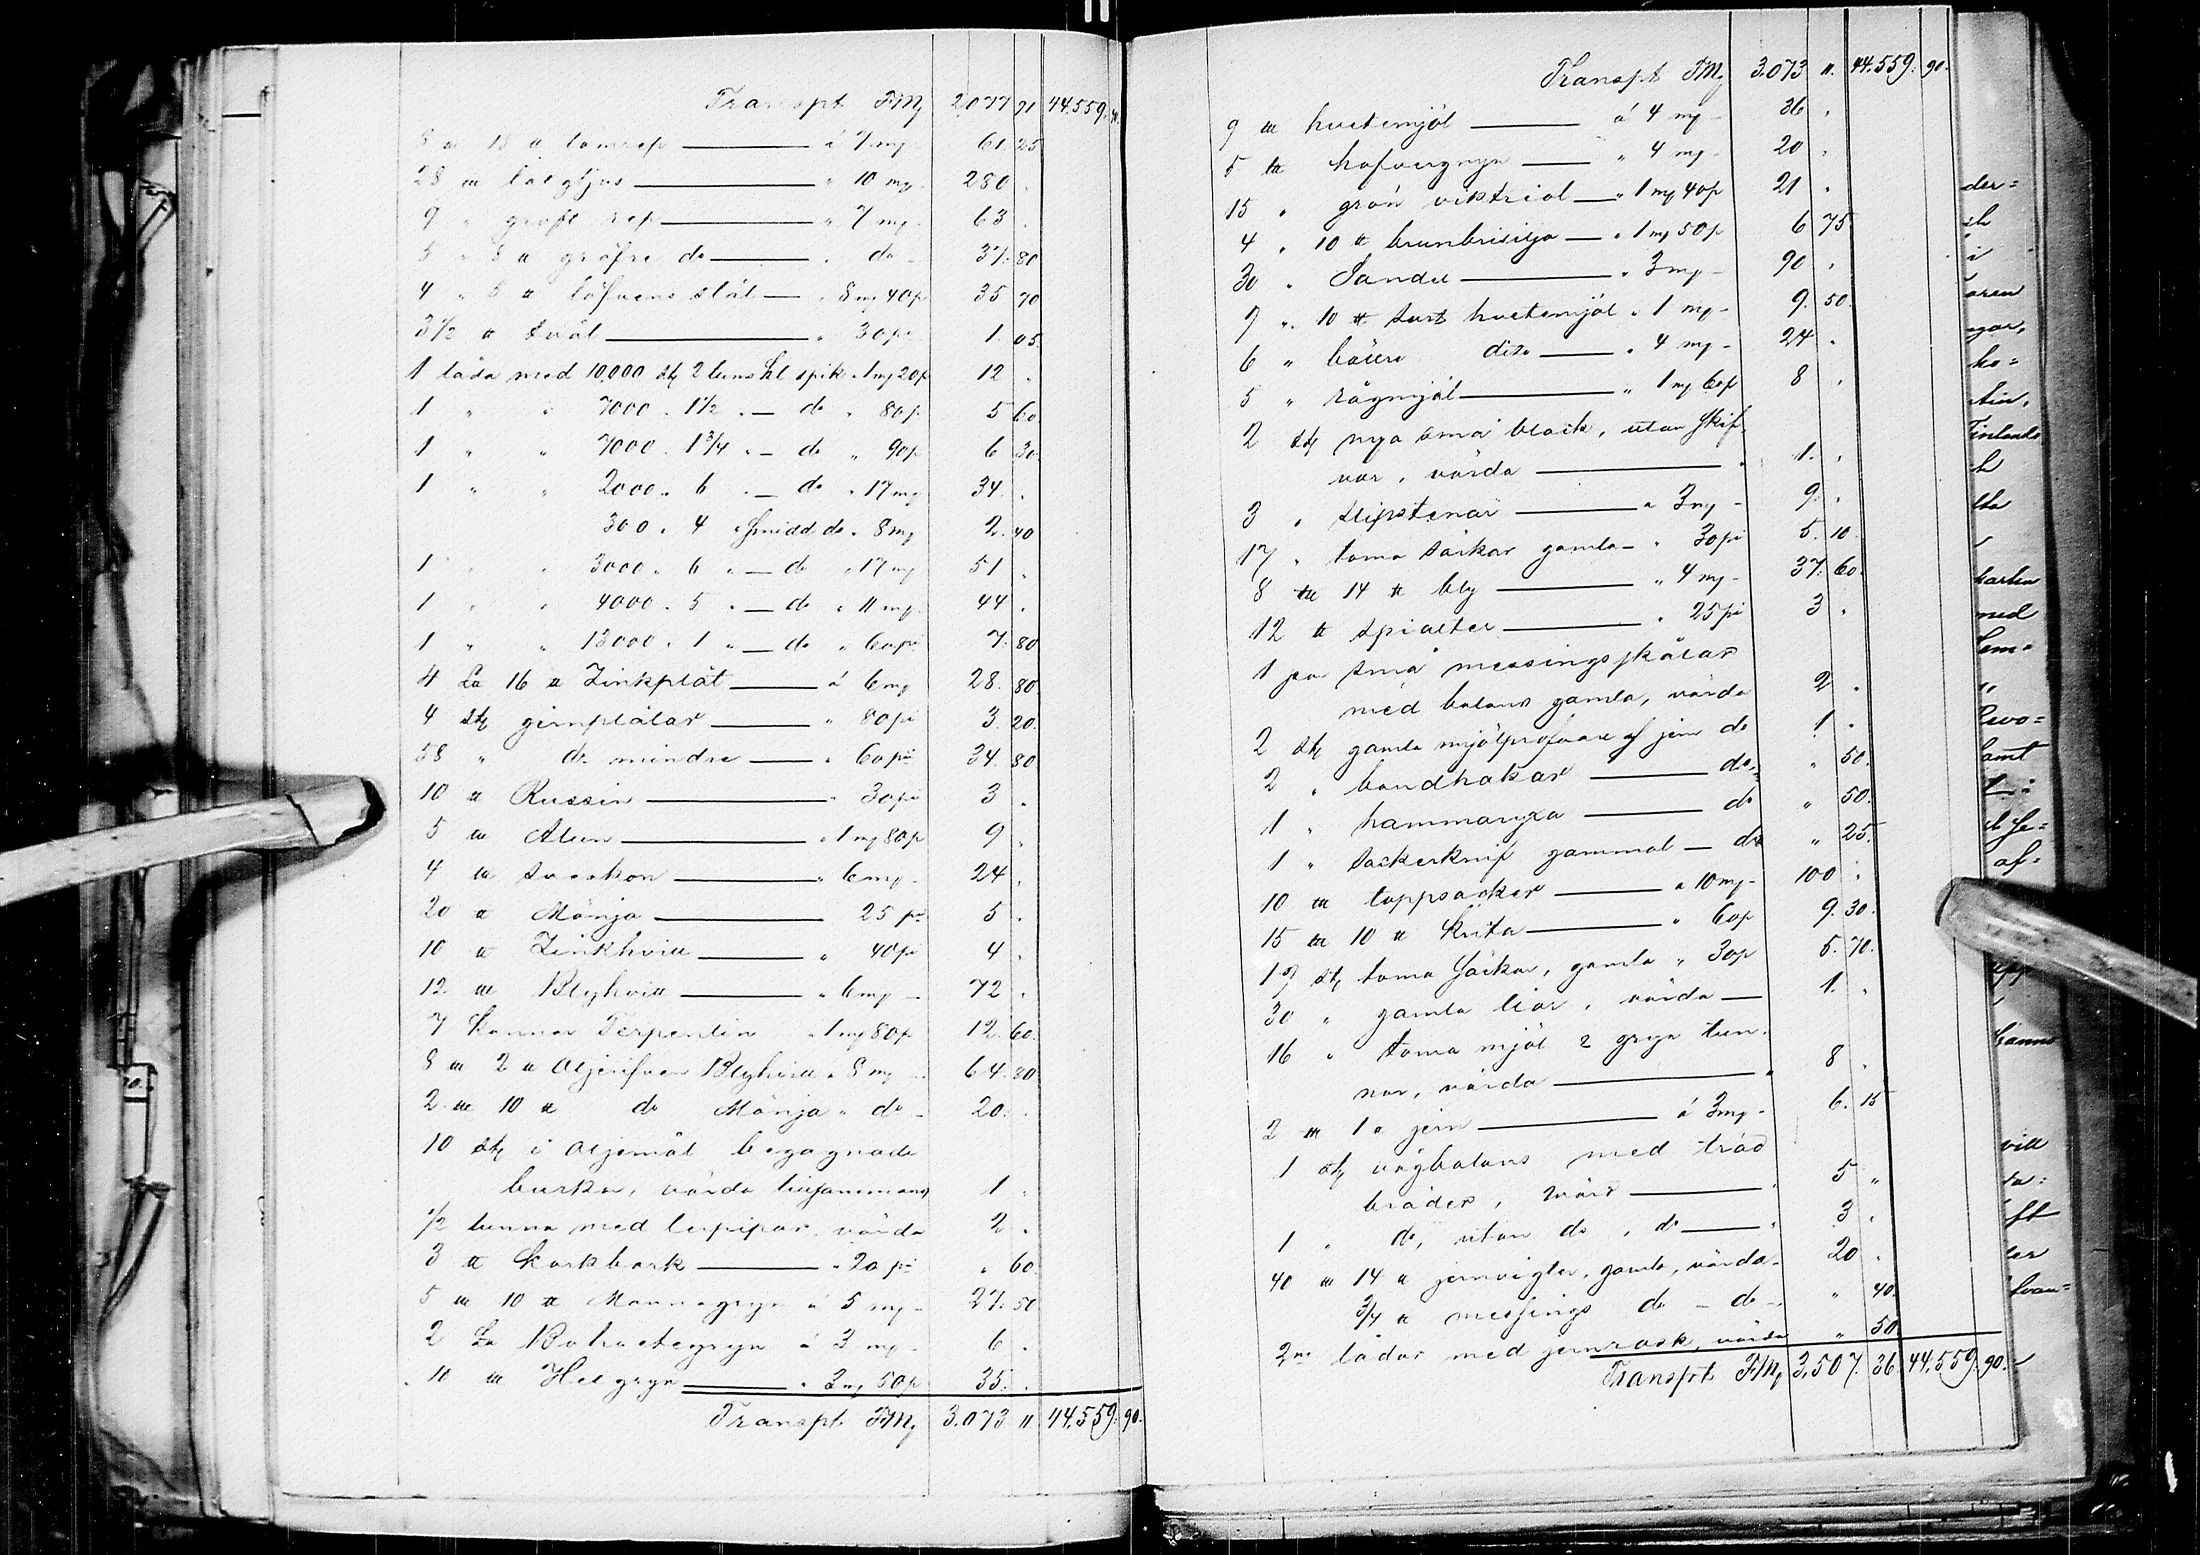 Transpt FMg 2,077 91 44.559. 90.
8 " 15 tt tomrep á 7 mg 61 25
28 " talgljus " 10 mg 280 "
9 " groft rep " 7 mg 63 "
5 " 8 tt gröfre do " do 37. 80
4 " 5 tt löfvens stål " 8 mg 40 p 35 70
3 1/2 tt tvål " 30 pi 1. 05.
1 låda med 10,000 stg 2 tums hl spik " 1 mg 20 p 12 "
1 " " 7000 " 1 1/2 " do " 80 p 5 60
1 " " 7000 " 1 3/4 " do " 90 p 6 30
1 " " 2000 " 6 " do " 17 mg 34. "
300 " 4 " smidd do " 8 mg 2. 40
1 " " 3000 " 6 " do " 17 mg 51 "
1 " " 4000 " 5 " do " 11 mg 44 "
1 " " 13000 " 1 " do " 60 pi 7. 80
4 La 16 tt Zinkplåt á 6 mg 28. 80
4 stg jernplåtar " 80 pi 3. 20.
58 " do mindre " 60 pi 34. 80
10 tt Russin " 30 pi 3 "
5 " Alun " 1 mg 80 p 9 "
4 " sveskon " 6 mg 24 "
20 tt Mönja 25 pi 5 "
10 tt Zinkhvitt " 40 pi 4 "
12 " Blyhvitt " 6 mg 72 "
7 kannor Terpentin " 1 mg 80 p 12. 60.
8 " 2 tt Oljerifven Blyhvitt " 8 mg 64. 80
2 " 10 tt do Mönja " do 20. "
10 stg i Oljemål begagnade
burkar, värda tillsammans 1 "
1/2 tunna med lerpipor, värda 2 "
3 tt Korkbark " 20 pi " 60
5 " 10 tt Mannagryn á 5 mg 27. 50
2 La Bohvetegryn á 3 mg 6 "
10 " Helgryn " 3 mg 50 p 35. "
Transpt FMg 3.073 11 44.559. 90.
Transpt FMg 3.073 11. 44.559. 90.
9 " hvetemjöl á 4 mg 36 "
5 " hafvergryn " 4 mg 20 "
15 " grön viktriol " 1 mg 40 p 21 "
4 " 10 tt brunbrisilja " 1 mg 50 p 6 75
30 " Sandel " 3 mg 90 "
9 " 10 tt surt hvetemjöl " 1 mg 9. 50.
6 " bättre dito " 4 mg 24 "
5 " rågmjöl " 1 mg 60 p 8 "
2 stg nya små block, utan skif-
vor, värda 1. "
3 " slipstenar " 3 mg 9. "
17 " toma säckar gamla " 30 pi 5. 10
8 " 14 tt bly " 4 mg 37. 60.
12 tt spialter " 25 pi 3 "
1 par små messingsskålar
med balans gamla, värda 2 "
2 stg gamla mjölprofvare af jern do 1 "
2 " bandhakar do " 50.
1 " hammaryxa do " 50.
1 " sockerknif gammal do " 25.
10 " toppsocker " 10 mg 100 "
15 " 10 tt krita " 60 p 9. 30.
19 stg toma säckar, gamla " 30 p 5. 70.
30 " gamla liar, värda 1. "
16 " toma mjöl & gryn tun-
nor, värda 8 "
2 " 1 tt jern á 3 mg 6. 15
1 stg vågbalans med träd
bräder, värd 5 "
1 " do, utan do, do 3 "
40 " 14 tt jernvigter, gamla, värda 20 "
3/4 tt messings do do " 40.
2ne lådor med jernrask, värda " 50
Transpt FMg 3,507. 36 44.559. 90.